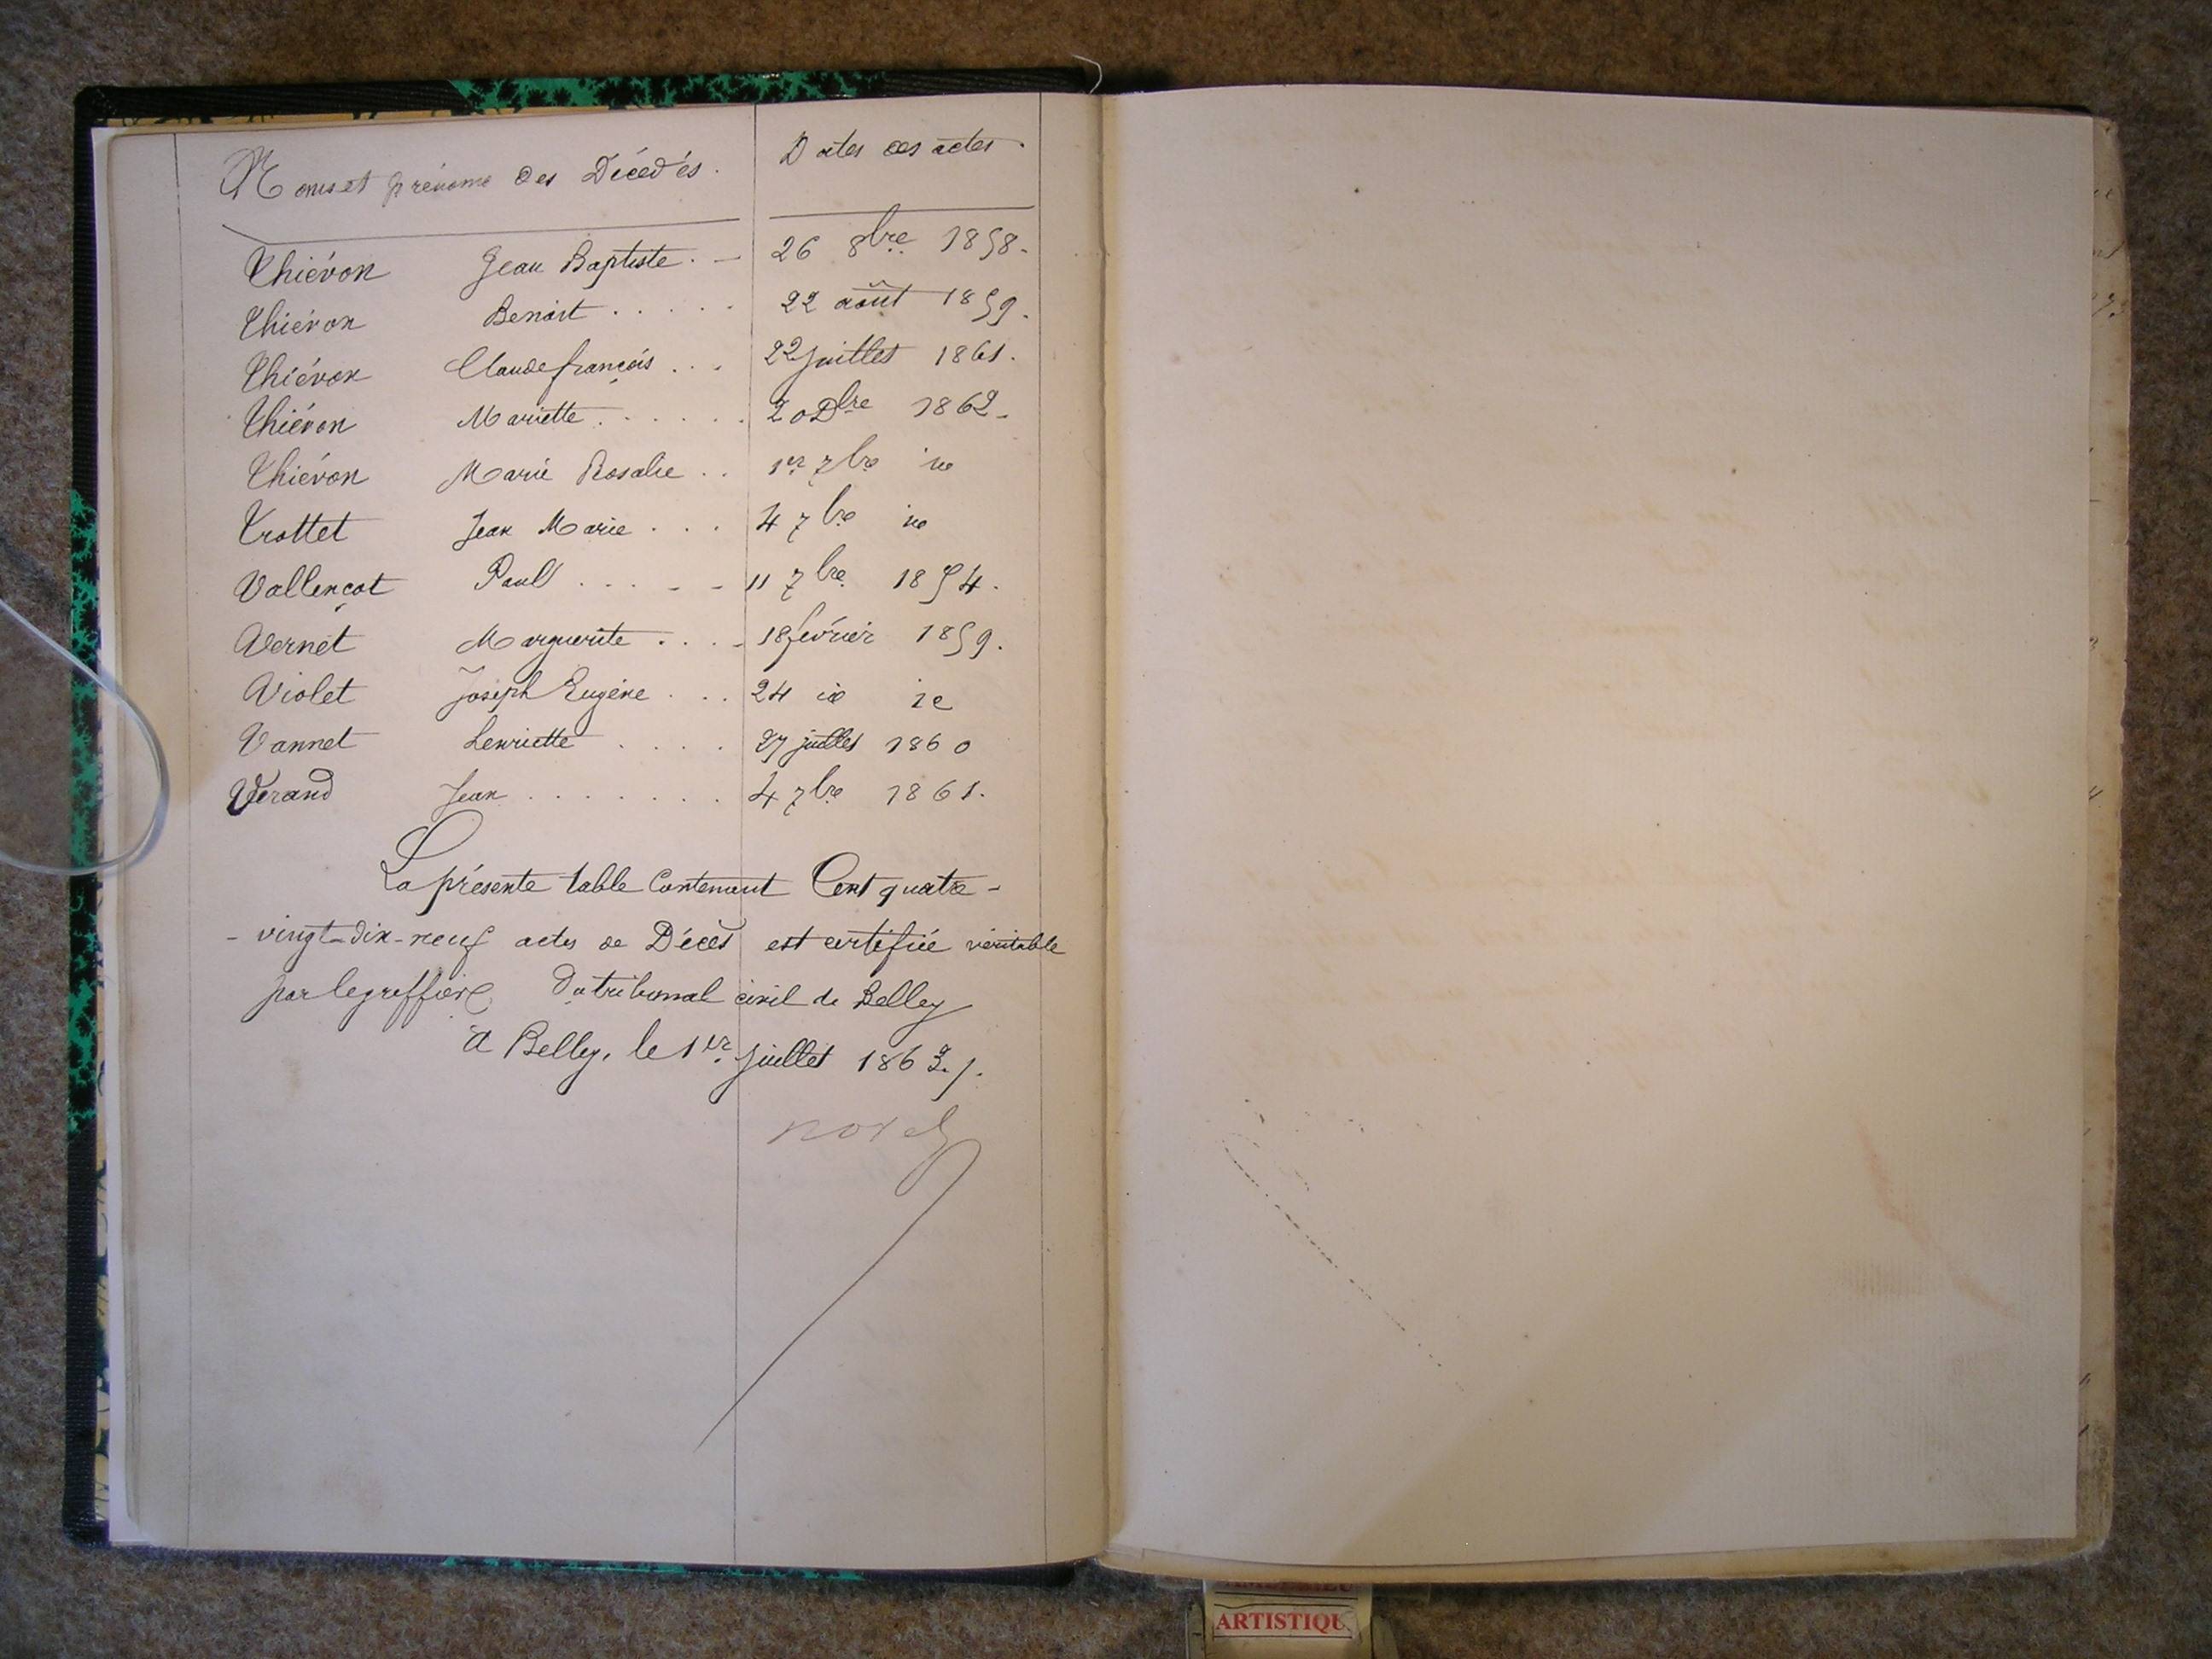 Noms et prénoms des Décédés. Dates des actes.
Thiévon Jean Baptiste. - 26 8bre 1858.
Thiévon Benoit ..... 22 août 1859.
Thiévon Claude françois ... 22 juillet 1861.
Thiévon Mariette ...... 20 Dbre 1862.
Thiévon Marie Rosalie .. 1er 7bre id
Trottet Jean Marie ... 4 7bre id
Vallençot Paul ..... 11 7bre 1854.
Vernet Marguerite .... 18 février 1859.
Violet Joseph Eugène ... 24 id id
Vannet henriette .... 27 juillet 1860
Verand Jean ....... 4 7bre 1861.
La présente table Contenant Cent quatre-
- vingt-dix-neuf actes de Décès est certifiée véritable
par le greffier du tribunal civil de Belley
A Belley, le 1er juillet 1863./.
ARTISTIQU